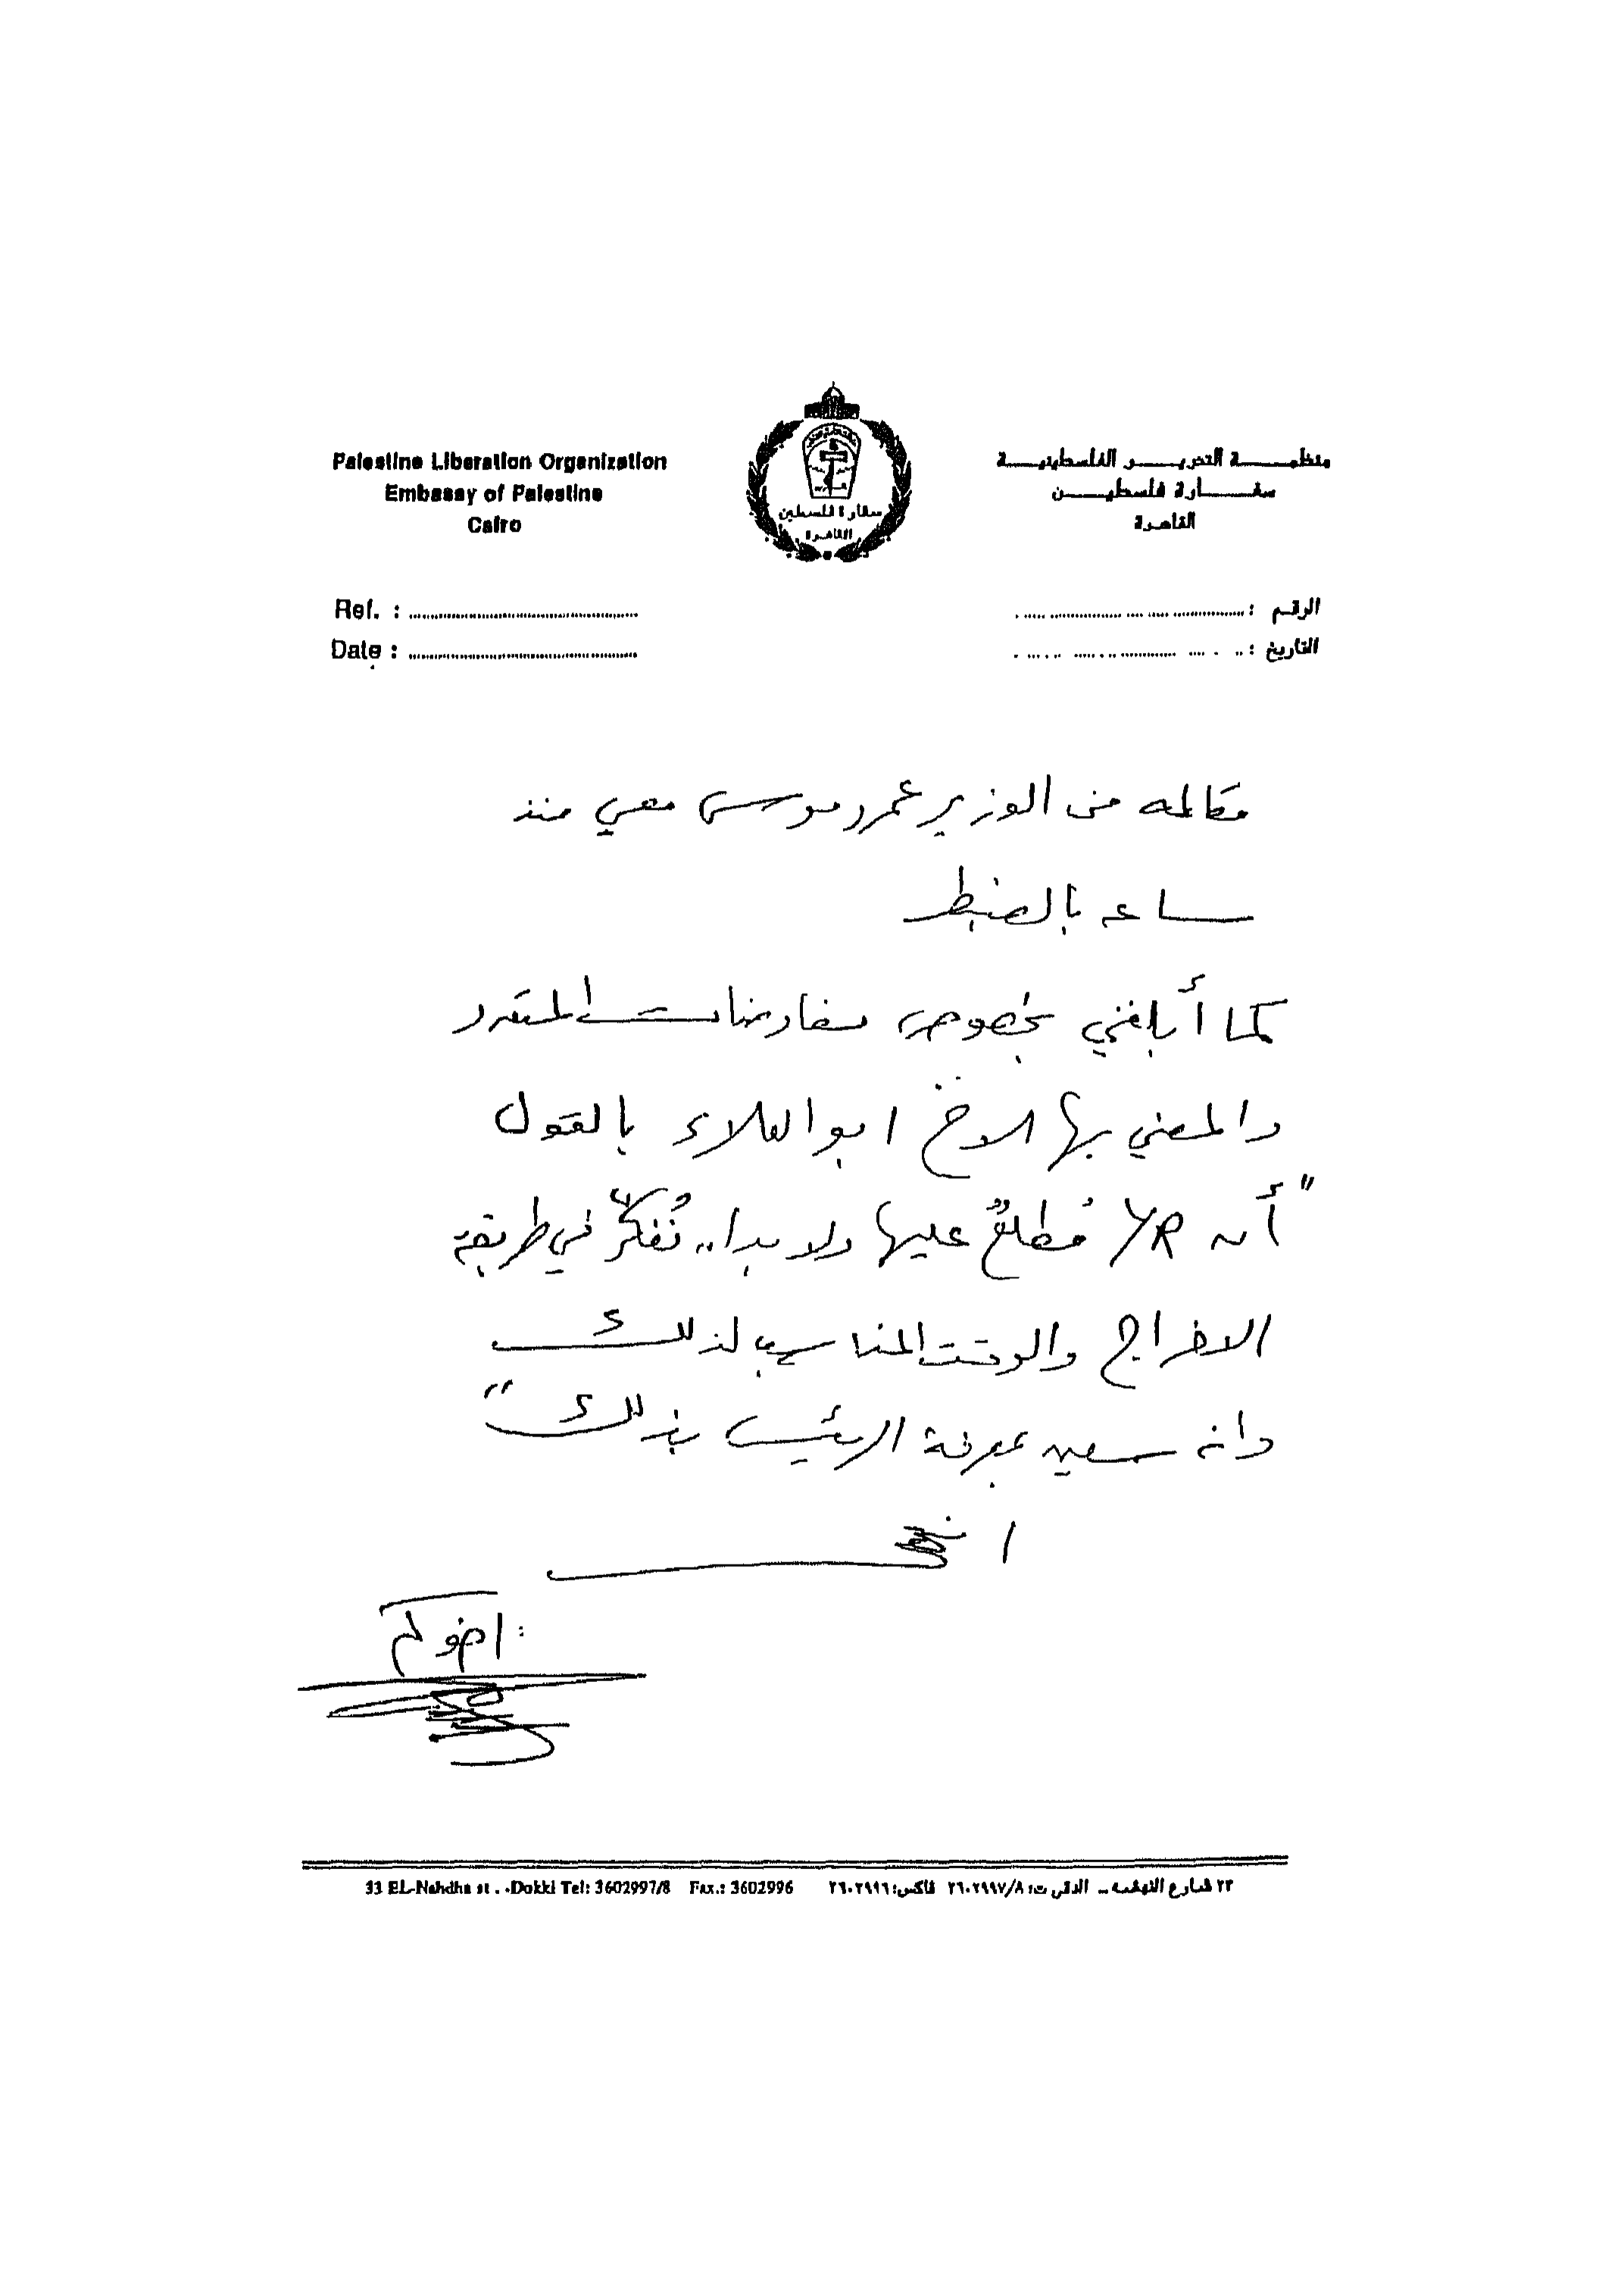 Palestine Liberation Organization
Embassy of Palestine
Cairo
منظمة التحرير الفلسطينية
سفارة فلسطين
القاهرة
سفارة فلسطين
القاهرة
Ref. : ........................
Date : ........................
الرقم : ........................
التاريخ : ........................
مكالمه من الوزير عمرو موسى معي منذ
ساعه بالضبط
كما أبلغني بخصوص مفاوضات
والمعني بها الاخ ابو العلاء بالقول
"أن YR مُطلعٌ عليها ولا بد ان نُفكّر في طريقة
الاخراج والوقت المناسب لذلك
وانه سعيد بمعرفة الرئيس بذلك"
اخوكم
33 EL-Nahdha st . .Dokki Tel: 3602997/8 Fax.: 3602996
٣٣ شارع النهضه ــ الدقى ت: ٣٦٠٢٩٩٧/٨ فاكس: ٣٦٠٢٩٩٦